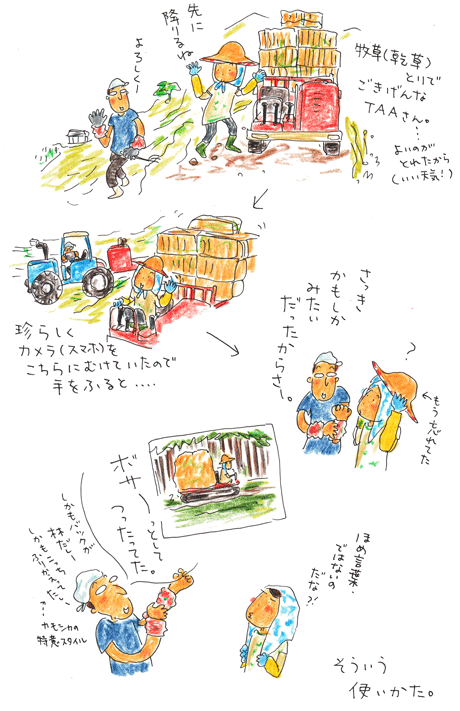 先に
降りるね
よろしくー
牧草(乾草)
とりで
ごきげんな
TAAさん。
…よいのが
とれたから
(いい天気!)
珍らしく
カメラ(スマホ)を
こちらにむけていたので
手をふると‥‥
さっき
かもしか
みたい
だったからさー。
?
←もう忘れてた
ボサーっとして
つったってた。
しかもバックが
林だし
しかもこっち
ふりかえってた…
↑
カモシカの
特意スタイル
ほめ言葉・
ではないの
だな?!
そういう
使いかた。